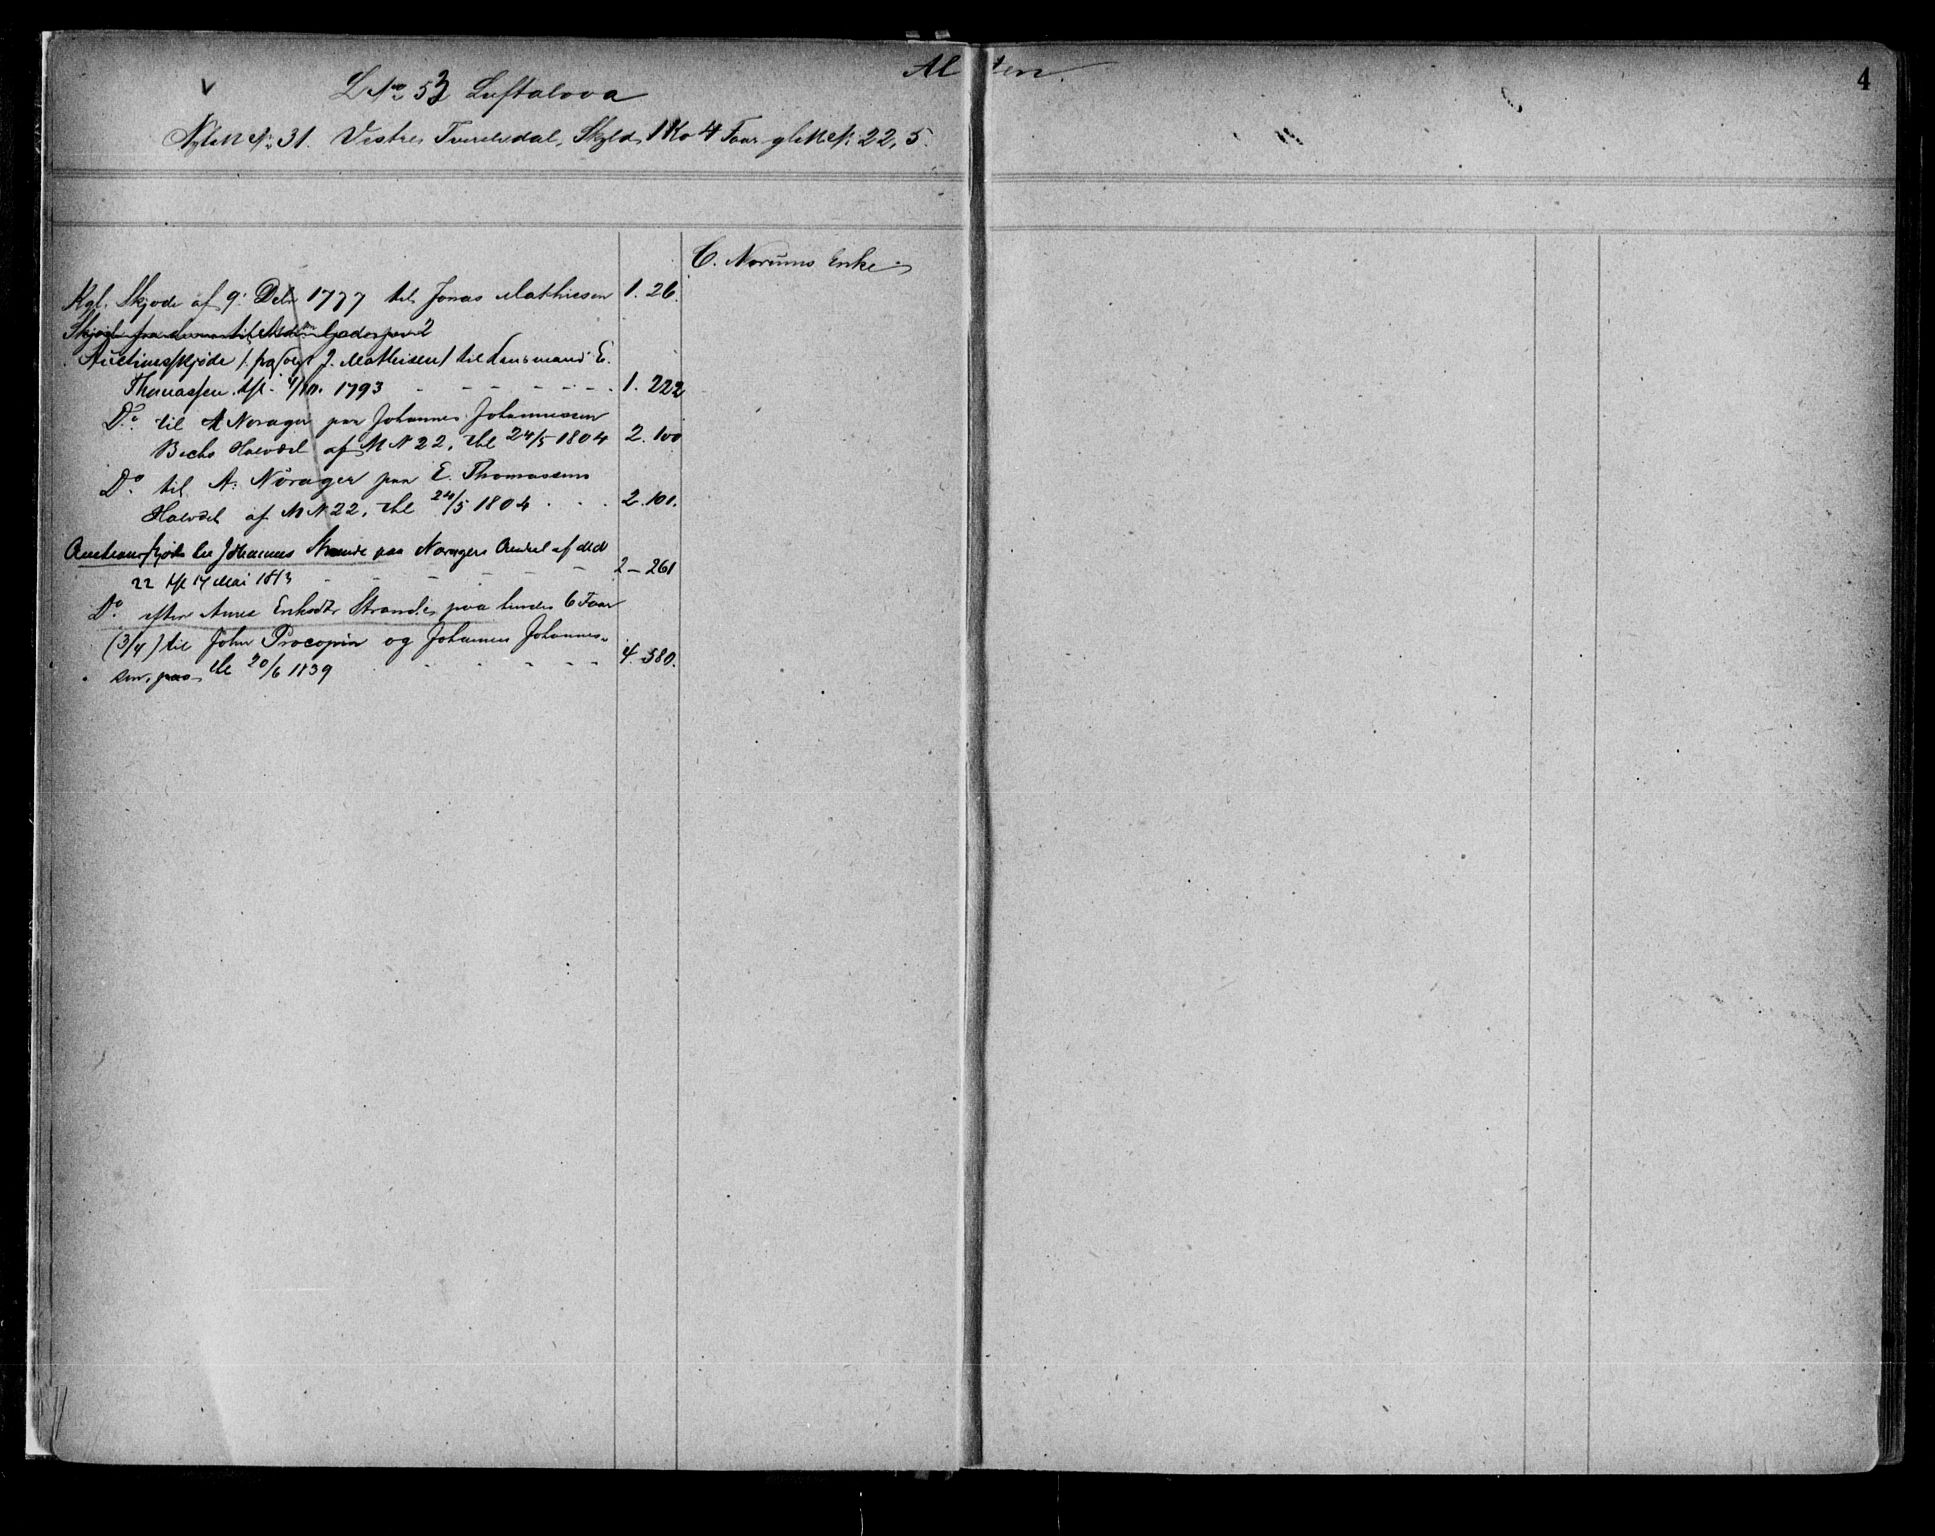 Alsten.
4
L No 53 Luftalova
M No 31. Vestre Tverelvdal, Skyld, 1 Ko 4 Faar gl. M. No. 22, 5.
C. Norums Enke
Kgl. Skjøde af 9. Debr 1777 til Jonas Mathiesen 1. 26.
Skjøde fra
Auctionsskjøde (fra J. Mathisen) til Lensmand E.
Thomassen. tgl. 1793 1. 222
Do. til A Norager paa Johannes Johannessen
Bechs Halvdel af M N 22, thl 24/5 1804 2. 100
Do. til A. Nörager paa E. Thomassens
Halvdel af M N 22, thl 24/5 1804 2. 101.
Auctionsskjöde til Johannes Strande paa Noragers Andel af
22 tgl 17 Mai 1813 2 - 261
Do. efter Anne Strandes paa hendes 6 Faar
(3/4) til John Procopin og Johannes Johannes-
sen, paa thl 20/6 1839 4. 580.